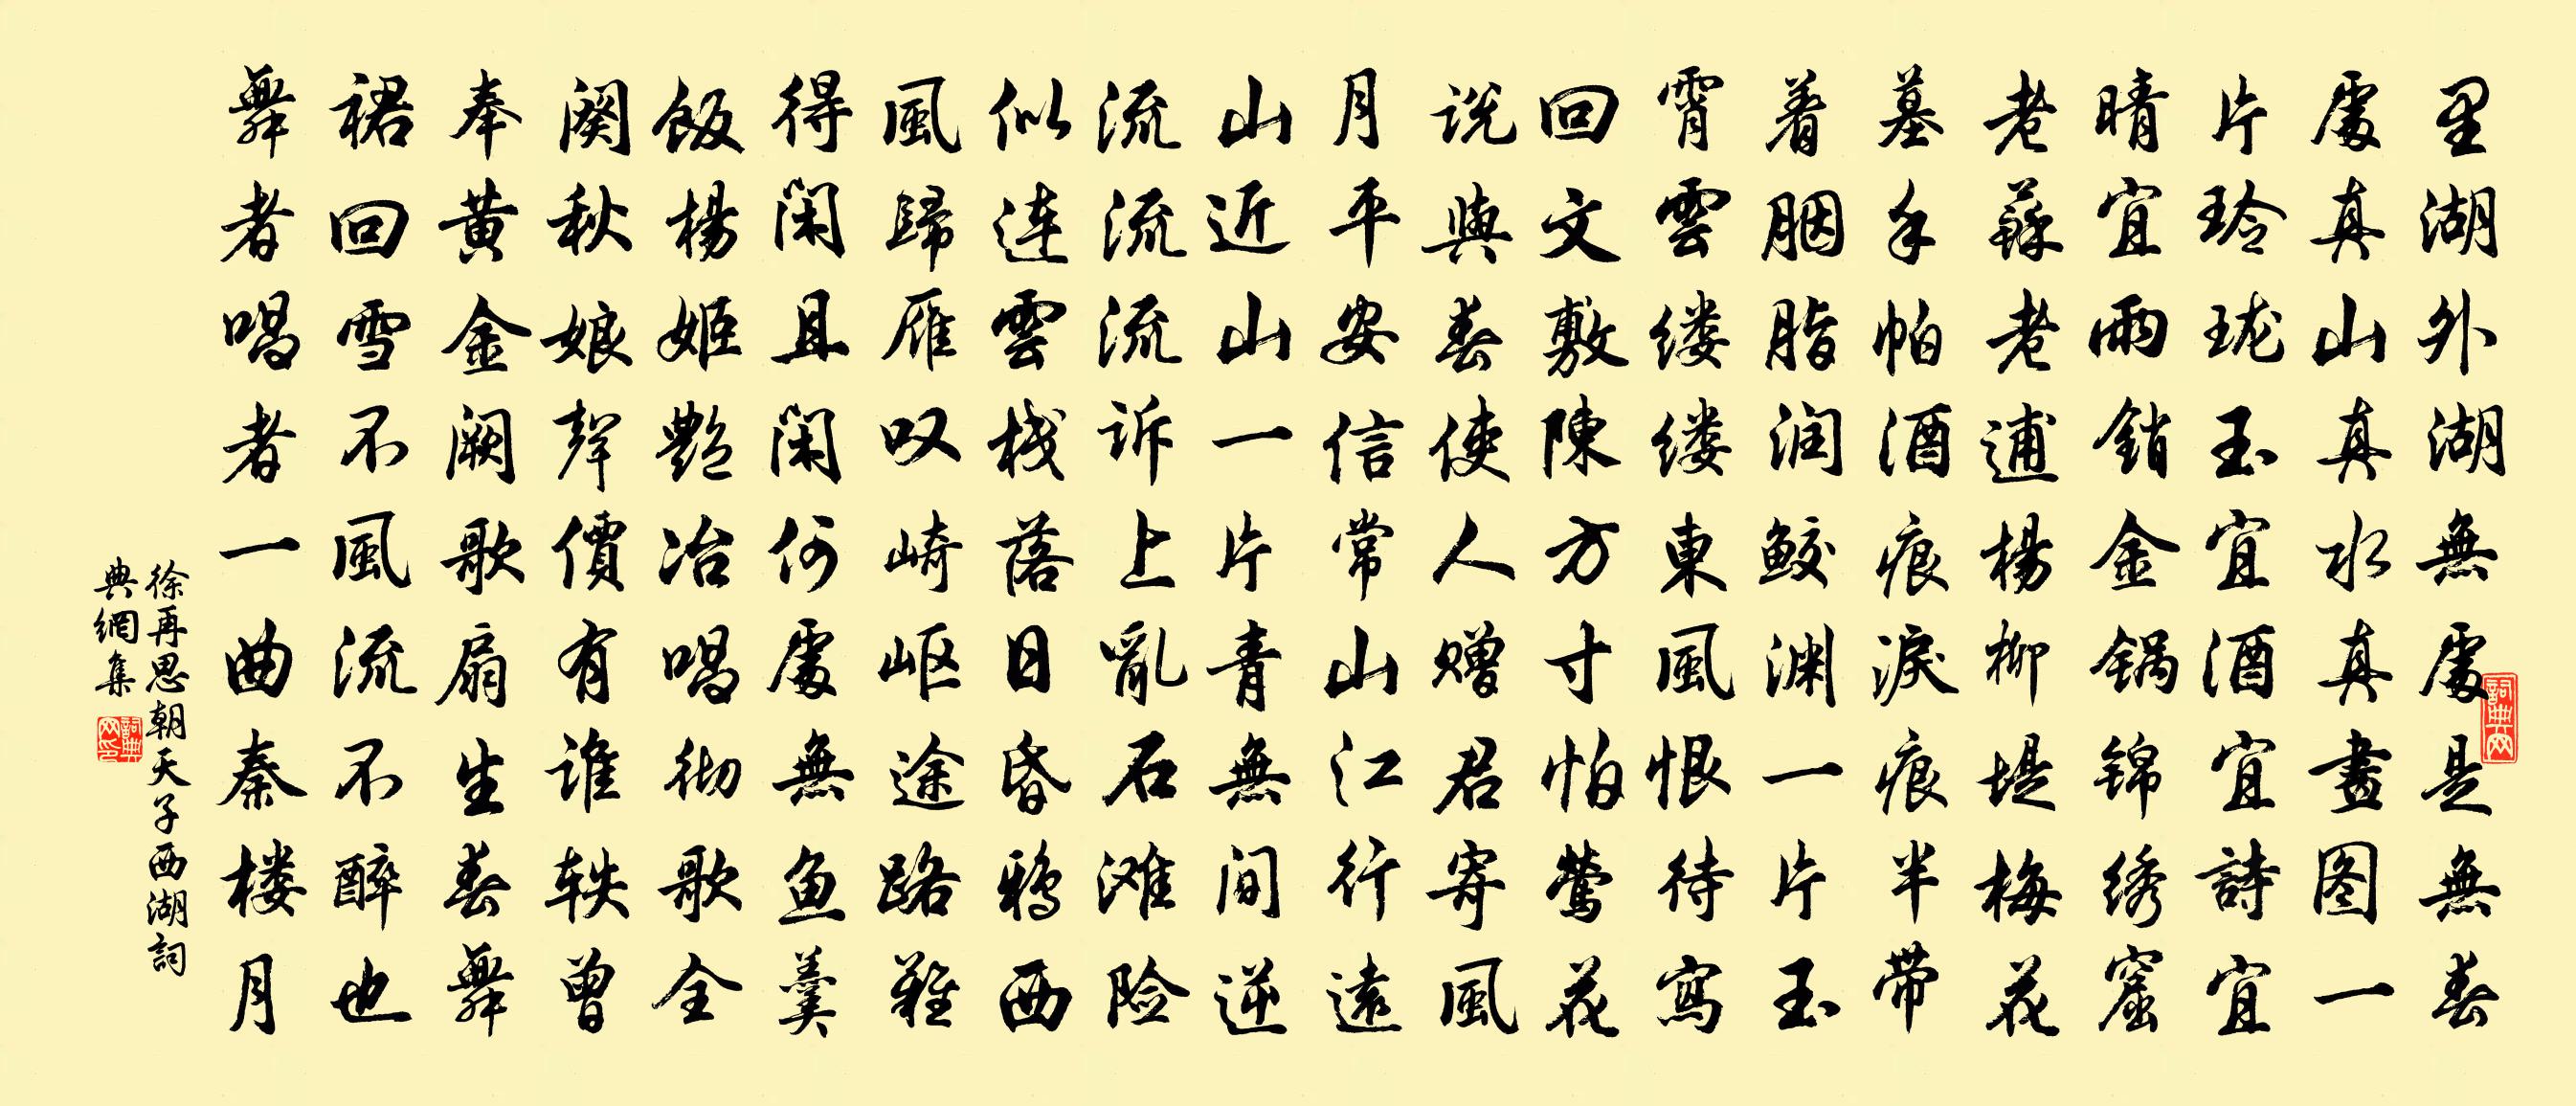 里湖外湖無處是無春
處真山真水真畫图一
片玲珑玉宜酒宜詩宜
晴宜雨銷金锅锦绣窟
老蘇老逋楊柳堤梅花
墓手帕酒痕淚痕半带
着胭脂润鲛渊一片玉
霄雲缕缕東風恨待寫
回文敷陳方寸怕莺花
説與春使人赠君寄風
月平安信常山江行遠
山近山一片青無間逆
流流流诉上亂石滩险
似连雲栈落日昏鸦西
風歸雁叹崎岖途路難
得閑且閑何處無鱼羹
飯楊姬艷冶唱彻歌全
阕秋娘聲價有谁轶曾
奉黄金阙歌扇生春舞
裙回雪不風流不醉也
舞者唱者一曲秦楼月
徐再思朝天子西湖詞
典網集
詞典网
詞典网印